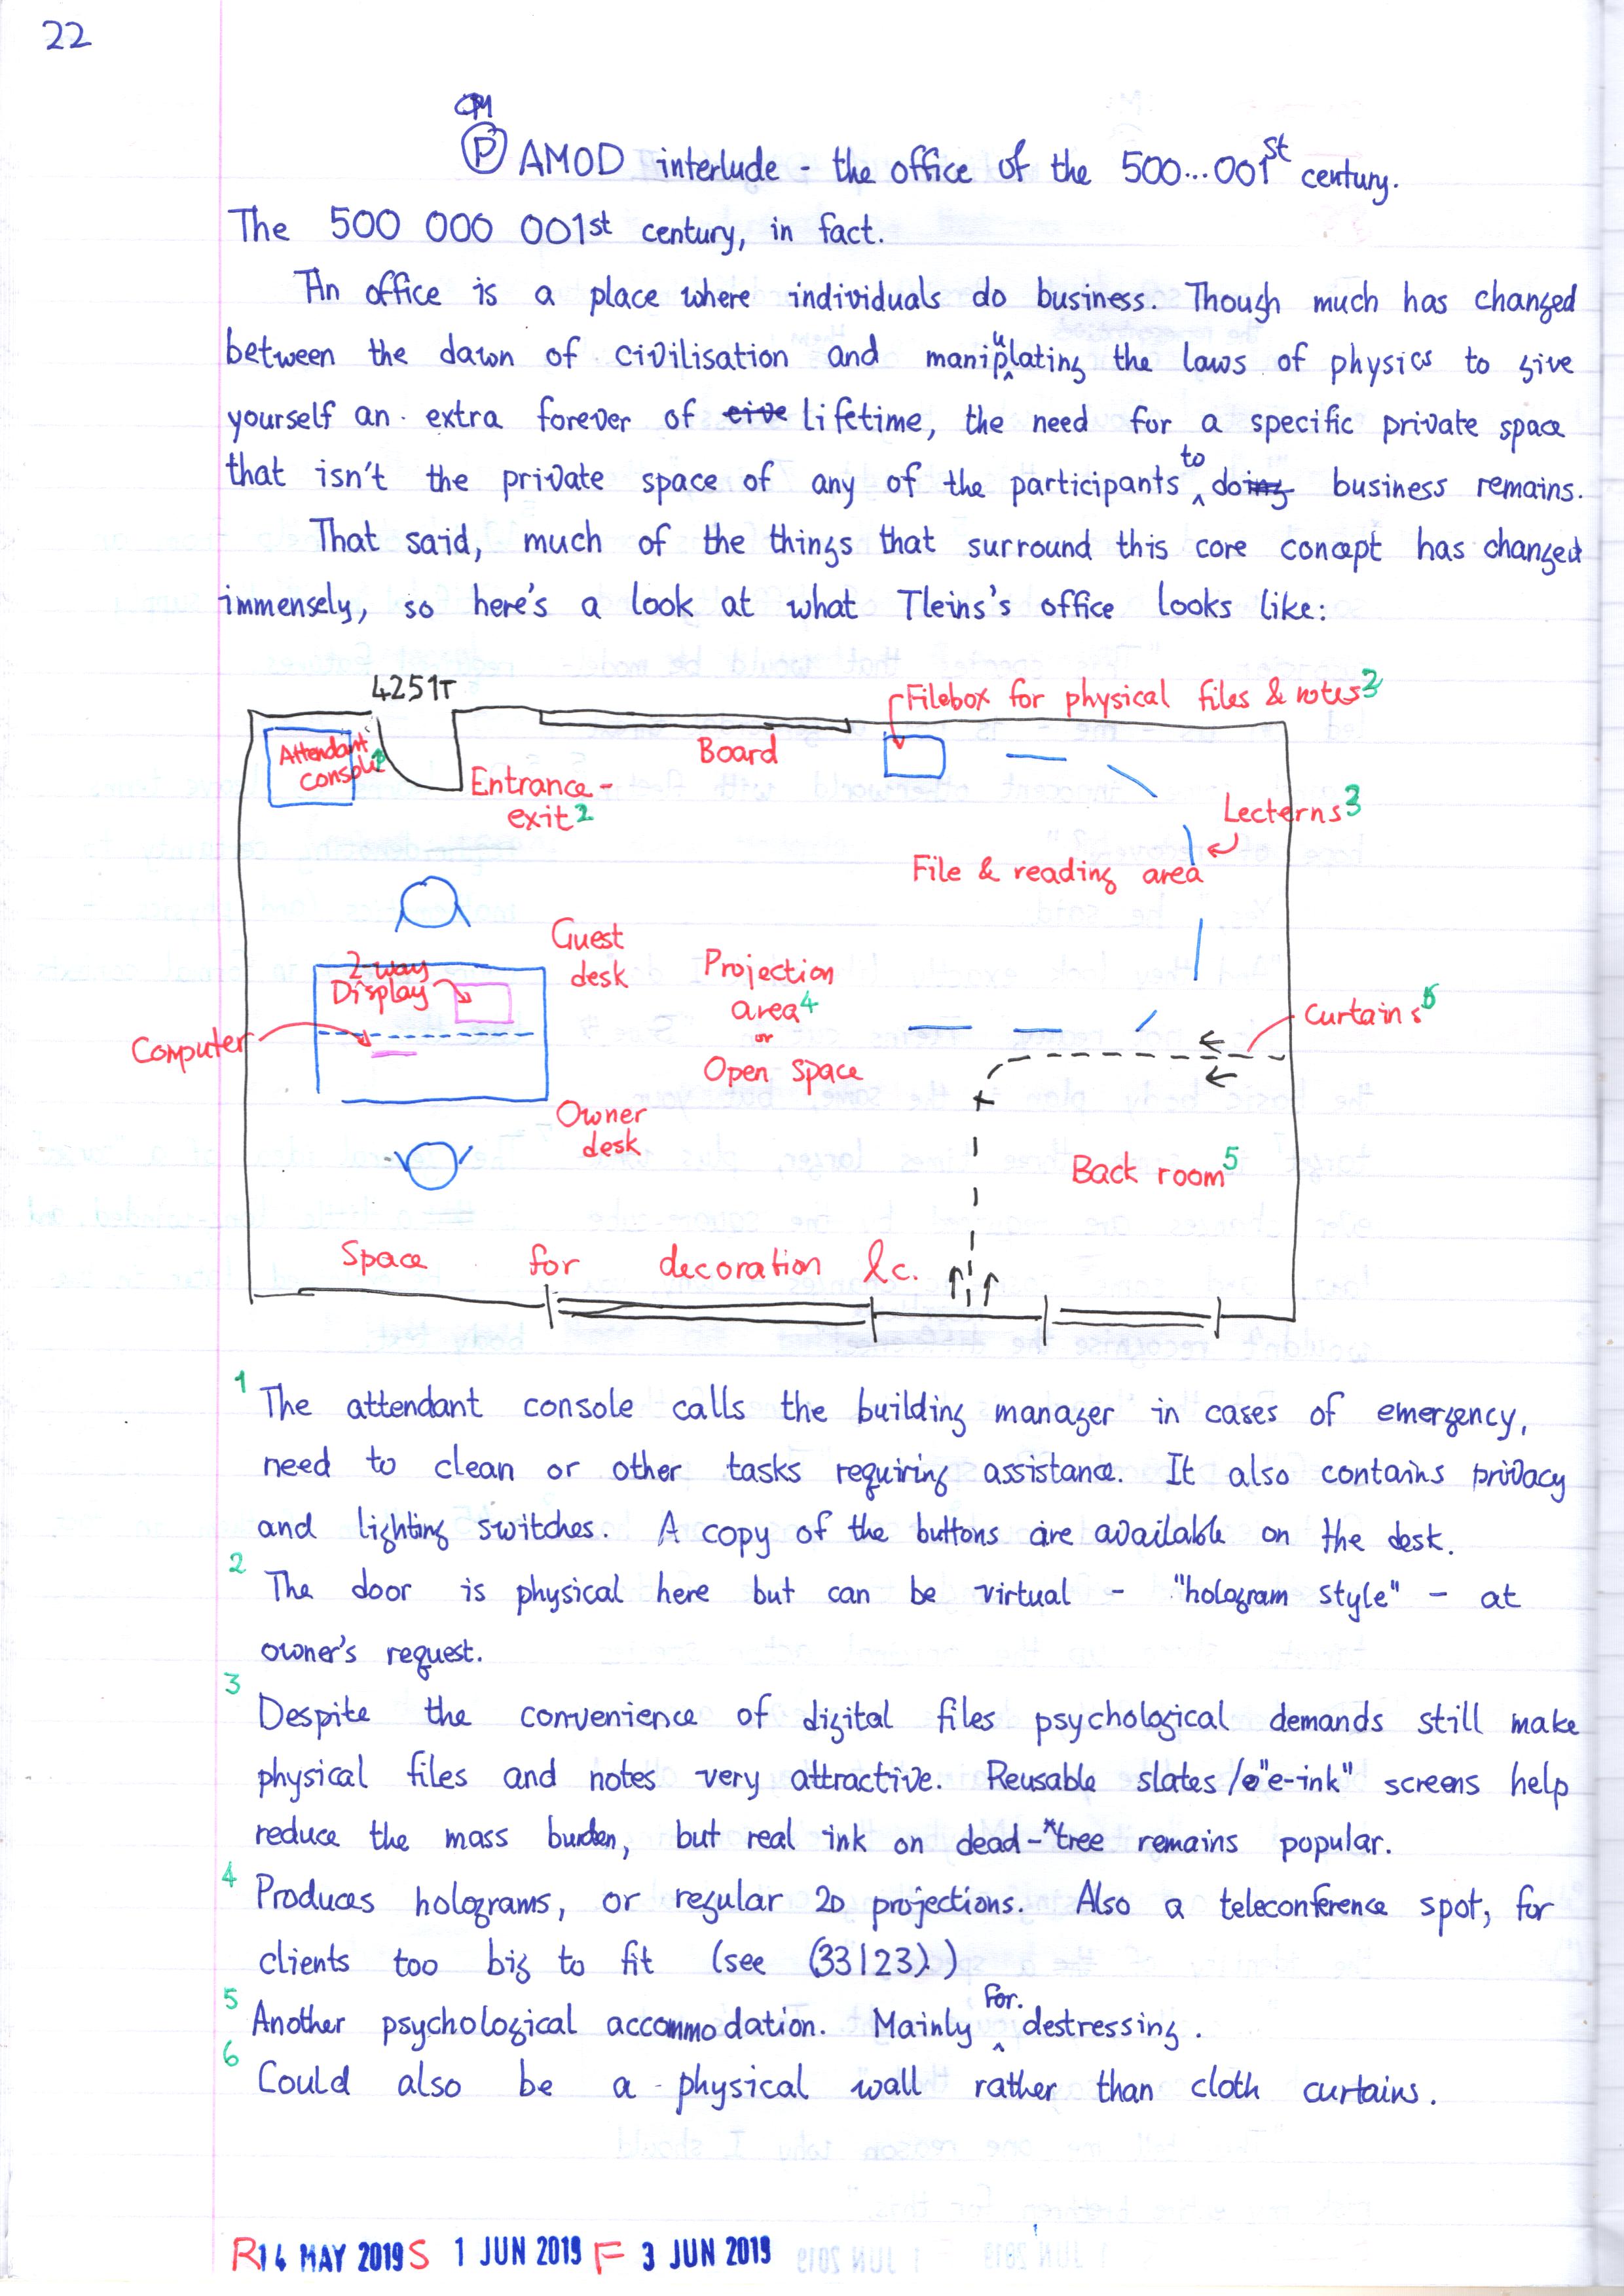 22
OM
P AMOD interlude - the office of the 500...001st century.
The 500 000 001st century, in fact.
An office is a place where individuals do business. Though much has changed
between the dawn of civilisation and manipulating the laws of physics to give
yourself an extra forever of lifetime, the need for a specific private space
that isn't the private space of any of the participants to do business remains.
That said, much of the things that surround this core concept has changed
immensely, so here's a look at what Tleins's office looks like:
4251T
Filebox for physical files & notes3
Attendant
console1
Board
Entrance-
exit2
Lecterns3
File & reading area
Guest
desk
2-way
Display
Projection
area4
or
Open space
Computer
Curtains6
Owner
desk
Back room5
Space for decoration &c.
1 The attendant console calls the building manager in cases of emergency,
need to clean or other tasks requiring assistance. It also contains privacy
and lighting switches. A copy of the buttons are available on the desk.
2 The door is physical here but can be virtual - "hologram style" - at
owner's request.
3 Despite the convenience of digital files psychological demands still make
physical files and notes very attractive. Reusable slates/"e-ink" screens help
reduce the mass burden, but real ink on dead-*tree remains popular.
4 Produces holograms, or regular 2D projections. Also a teleconference spot, for
clients too big to fit (see (33|23).)
5 Another psychological accommodation. Mainly for destressing.
6 Could also be a physical wall rather than cloth curtains.
R 14 MAY 2019 S 1 JUN 2019 F 3 JUN 2019